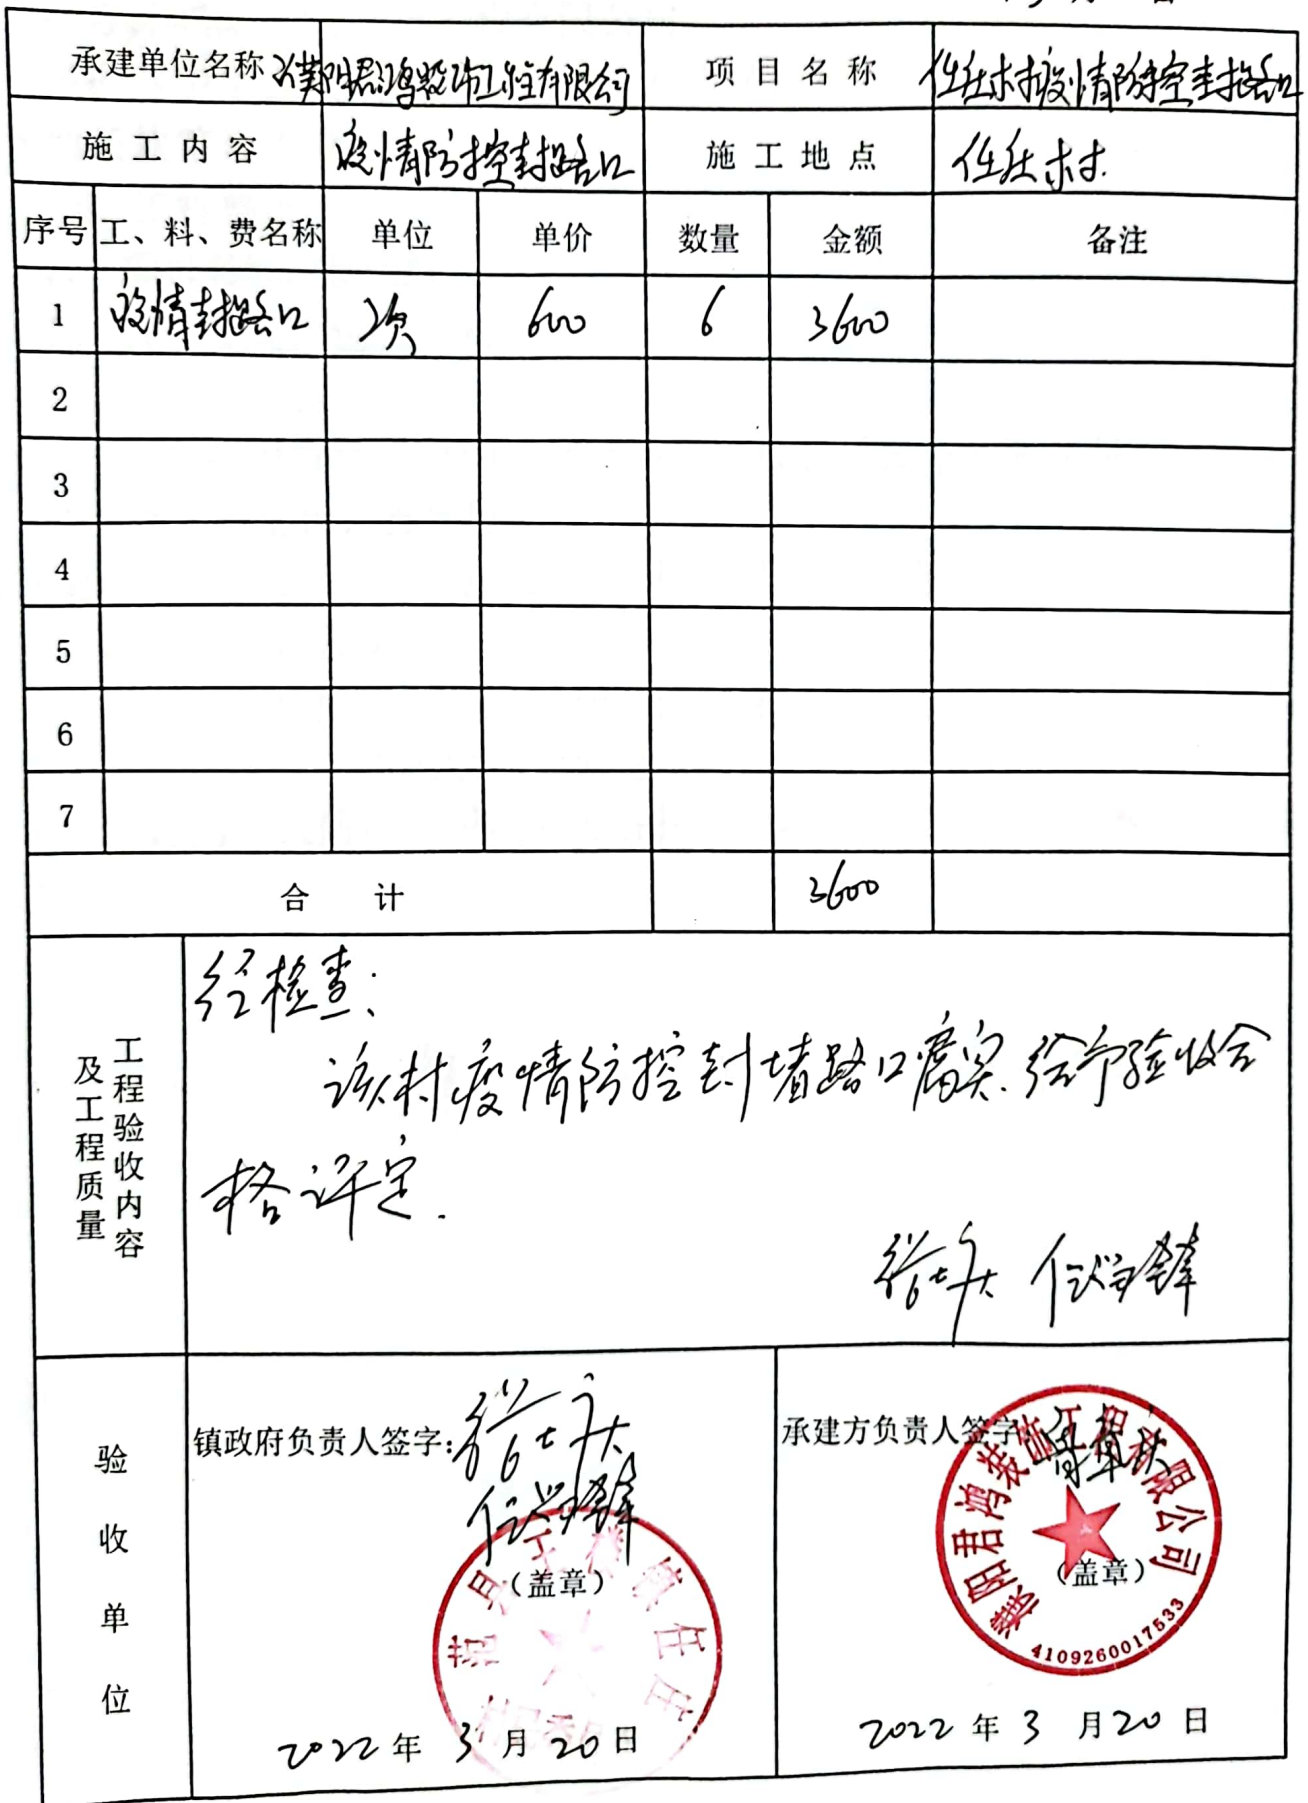 月 日
承建单位名称 濮阳君鸿装饰工程有限公司 项目名称 任庄村疫情防控封路口
施工内容 疫情防控封路口 施工地点 任庄村
序号 工、料、费名称 单位 单价 数量 金额 备注
1 疫情封路口 次 600 6 3600
2
3
4
5
6
7
合计 3600
工程验收内容
及工程质量
经检查:
该村疫情防控封堵路口属实.给予验收合
格评定.
验收单位
镇政府负责人签字:
(盖章)
2022年3月20日
承建方负责人签字
(盖章)
濮阳君鸿装饰工程有限公司
4109260017533
2022年3月20日